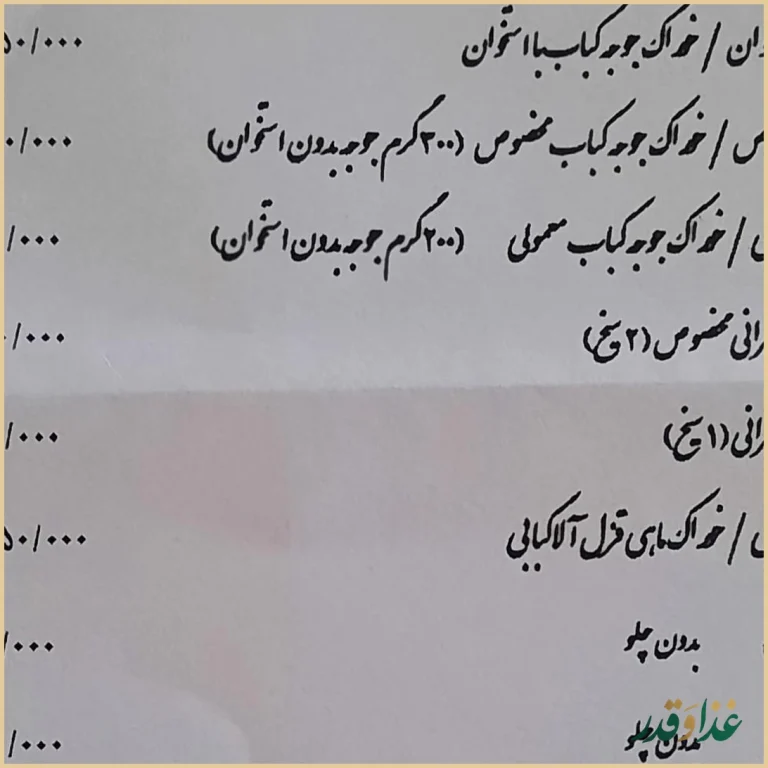 / خوراک جوجه کباب با استخوان ۵۰/۰۰۰
/ خوراک جوجه کباب مخصوص (۳۰۰ گرم جوجه بدون استخوان) ۰/۰۰۰
/ خوراک جوجه کباب معمولی (۲۰۰ گرم جوجه بدون استخوان) /۰۰۰
رانی مخصوص (۲ سیخ) /۰۰۰
رانی (۱ سیخ) /۰۰۰
/ خوراک ماهی قزل آلا کبابی ۵۰/۰۰۰
بدون چلو /۰۰۰
بدون چلو /۰۰۰
غذا و قدر